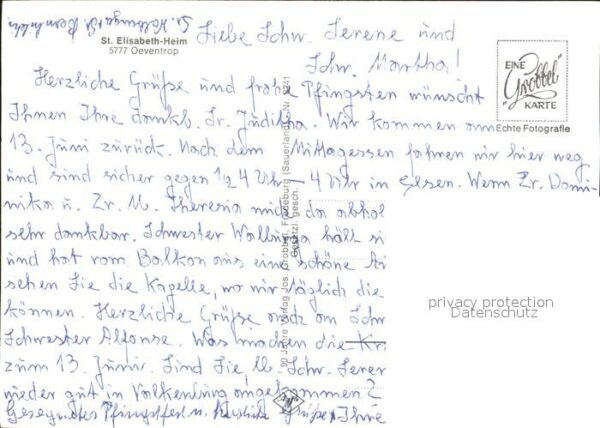 St. Elisabeth-Heim
5777 Oeventrop
Sr. Walburga u. Sr. Bernhildis
Liebe Schw. Serene und
Schw. Martha!
Herzliche Grüße und frohe Pfingsten wünscht
Ihnen Ihre dankb. Sr. Juditha. Wir kommen am
13. Juni zurück. Nach dem Mittagessen fahren wir hier weg
und sind sicher gegen 1/2 4 Uhr – 4 Uhr in Essen. Wenn Sr. Domi-
nika u. Sr. M. Theresia mich da abhol
sehr dankbar. Schwester Walburga hält si
und hat vom Balkon aus eine schöne
sehen Sie die Kapelle, wo wir täglich die
können. Herzliche Grüße auch an Schw
Schwester Alfonse. Was machen die Kr
zum 13. Juni. Sind Sie, lb. Schw. Seren
wieder gut in Valkenburg angekommen?
Gesegnetes Pfingstfest u. herzliche Grüße Ihre
EINE
"Grobbel"
KARTE
Echte Fotografie
90 Jahre Verlag Jos. Grobbel, Fredeburg (Sauerland)
Gesetzl. gesch.
privacy protection
Datenschutz